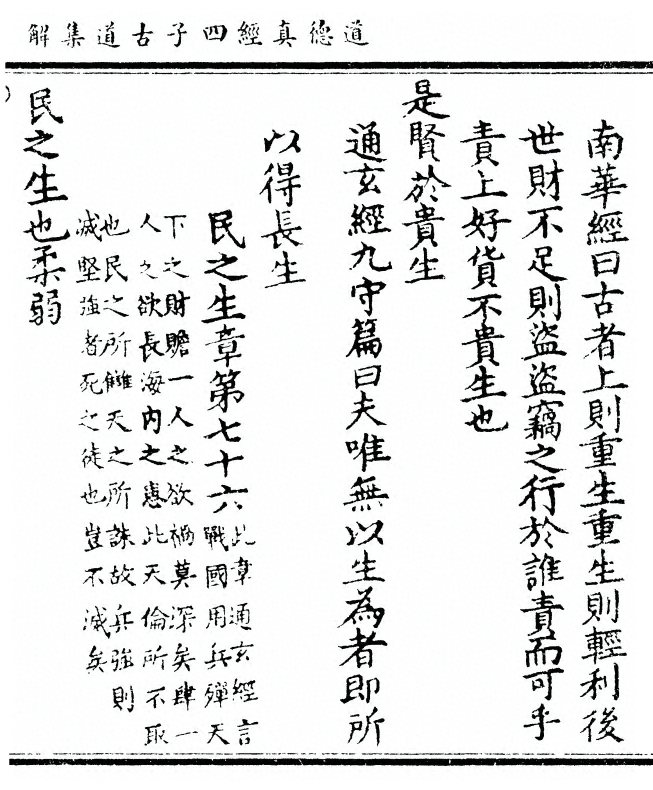 道德真經四子古道集解
南華經曰古者上則重生重生則輕利後
世財不足則盜盜竊之行於誰責而可乎
責上好貨不貴生也
是賢於貴生
通玄經九守篇曰夫唯無以生為者即所
以得長生
民之生章第七十六
此章通玄經言
戰國用兵殫天
下之財贍一人之欲禍莫深矣肆一
人之欲長海内之患此天倫所不取
也民之所讎天之所誅故兵強則
滅堅強者死之徒也豈不滅矣
民之生也柔弱